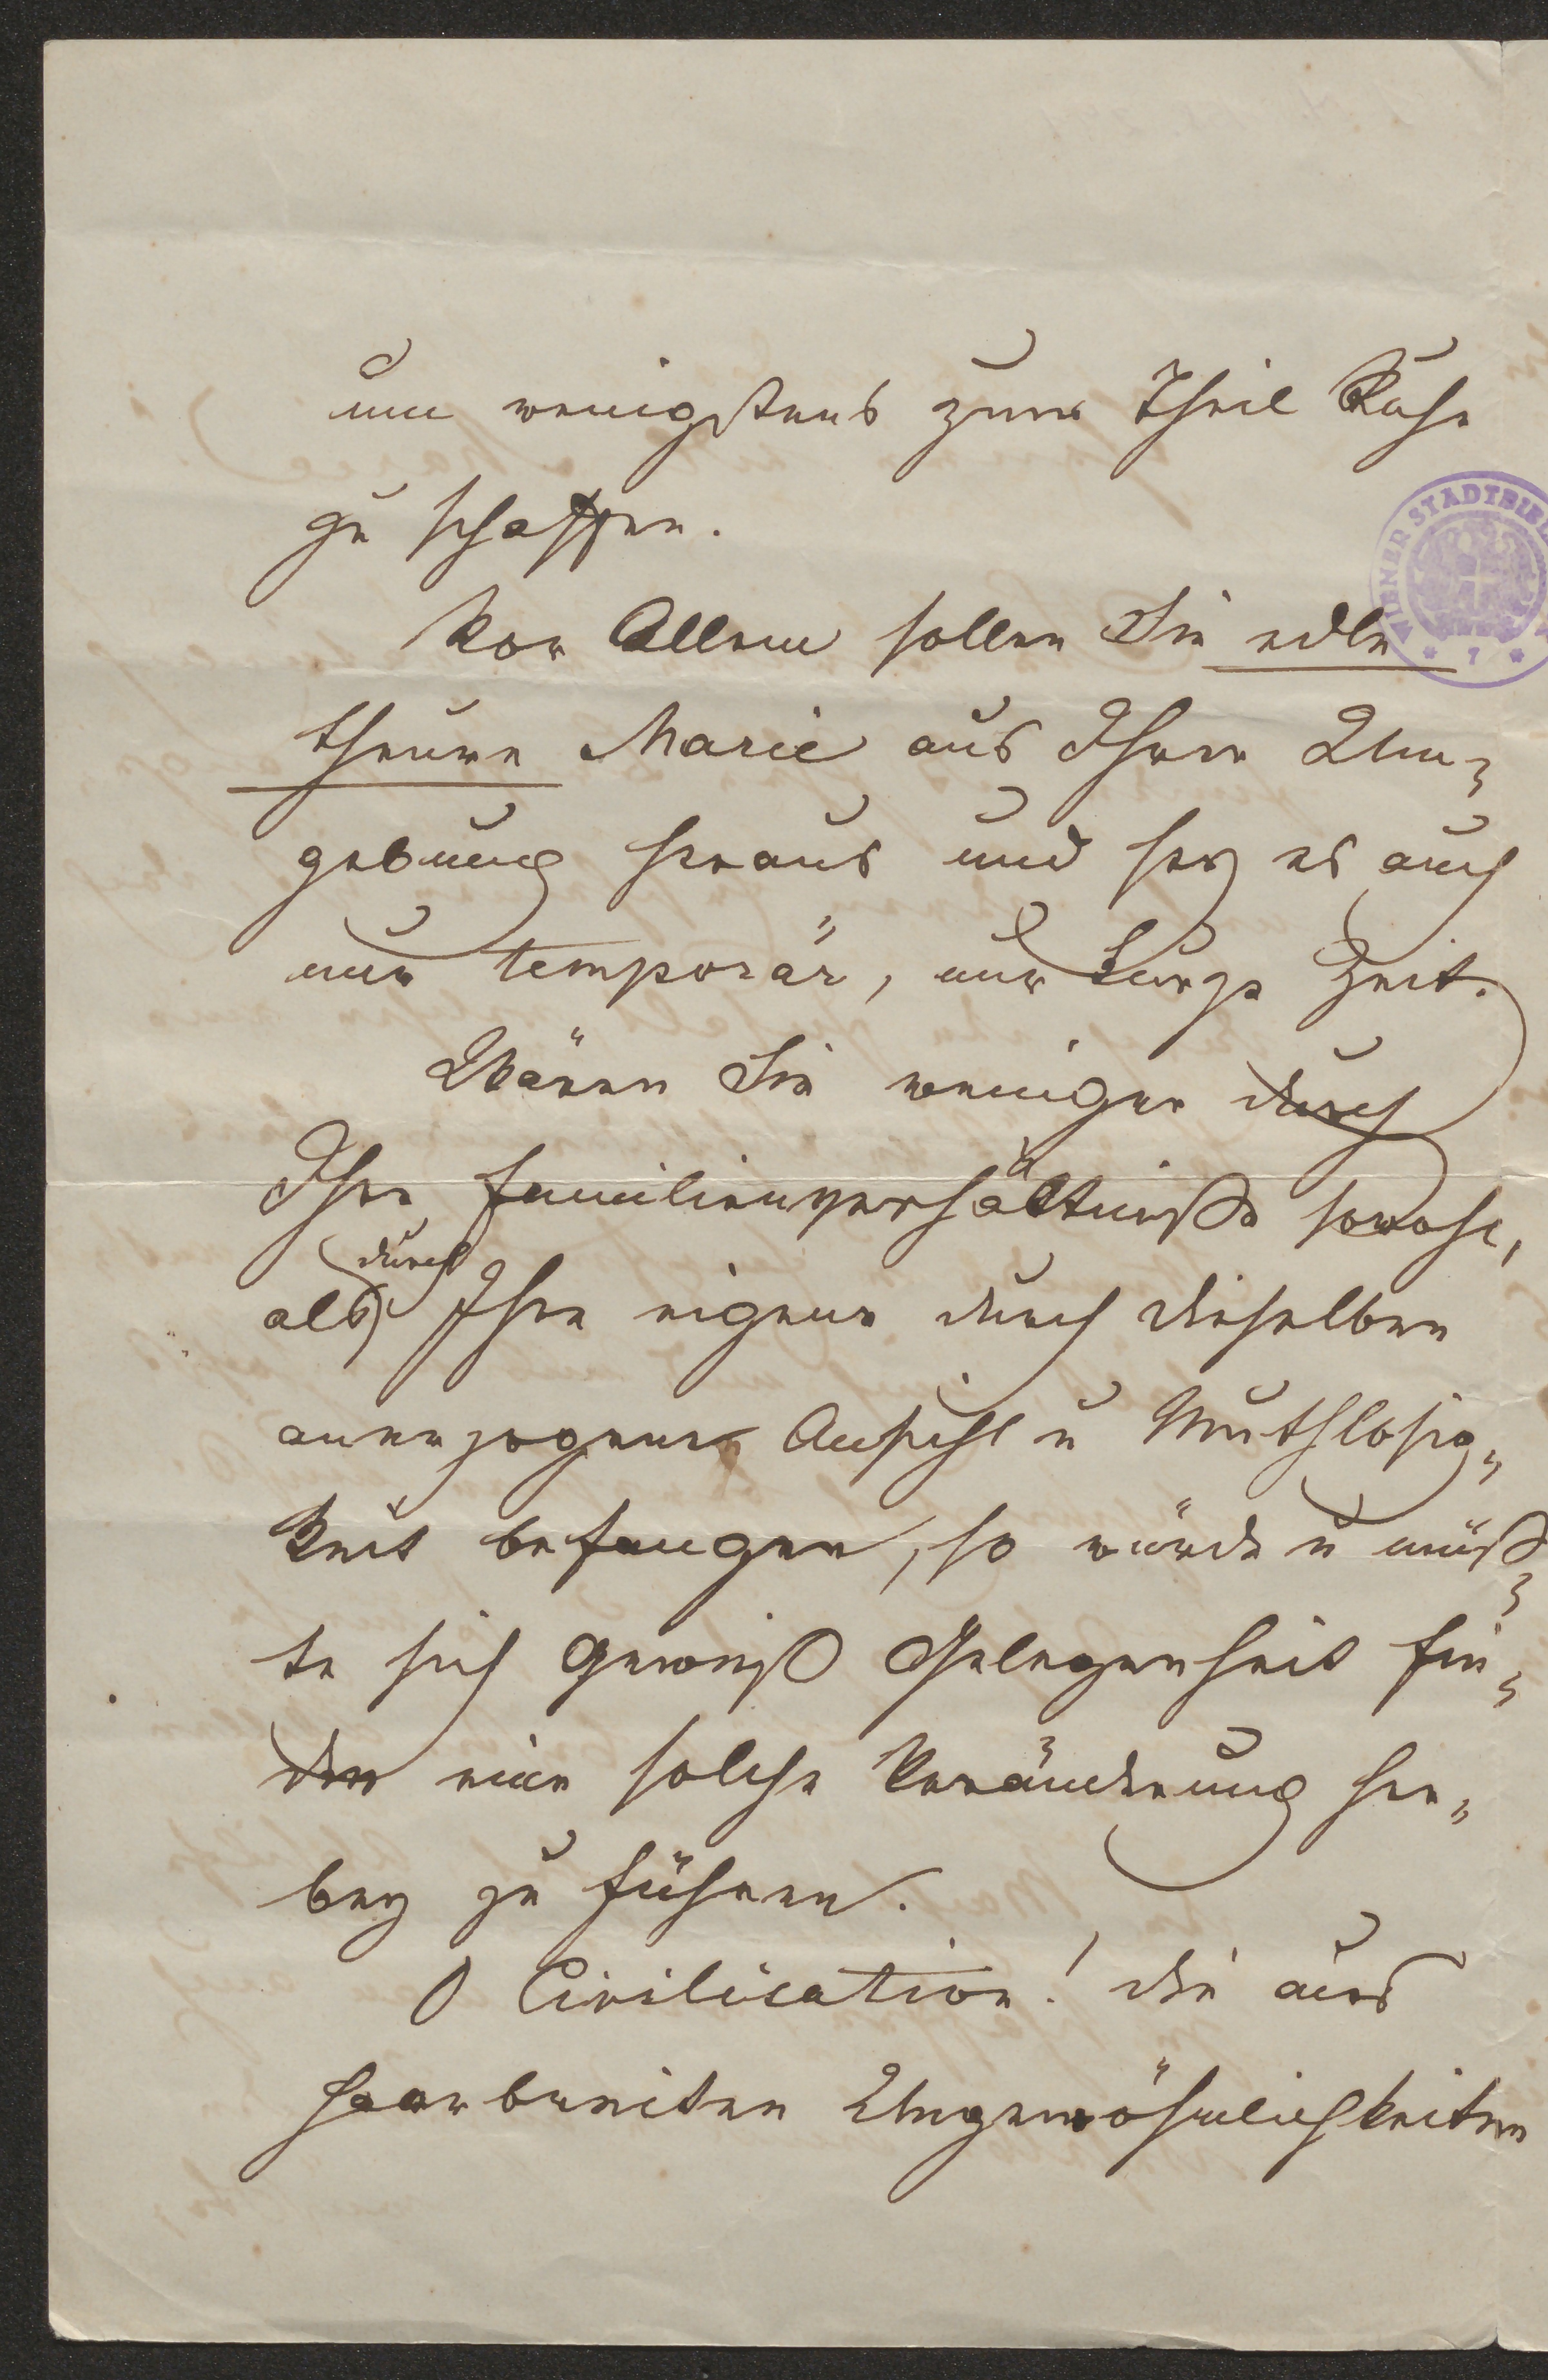 um wenigstens zum Theil Ruhe
zu schaffen.
Vor Allem sollen Sie edle
theure Marie aus Ihrer Um=
gebung heraus und sey es auch
nur temporär, nur kurze Zeit.
Wären Sie weniger durch
Ihre Familienverhältnisse sowohl,
als durch Ihre eigene durch dieselben
anerzogene Ansicht u Muthlosig=
keit befangen, so würde u müß=
te sich gewiß Gelegenheit fin=
den eine solche Veränderung her=
bey zu führen.
O Civilisation! die aus
haarbreiten Ungewöhnlichkeiten
WIENER STADTBIBL
* 7 *